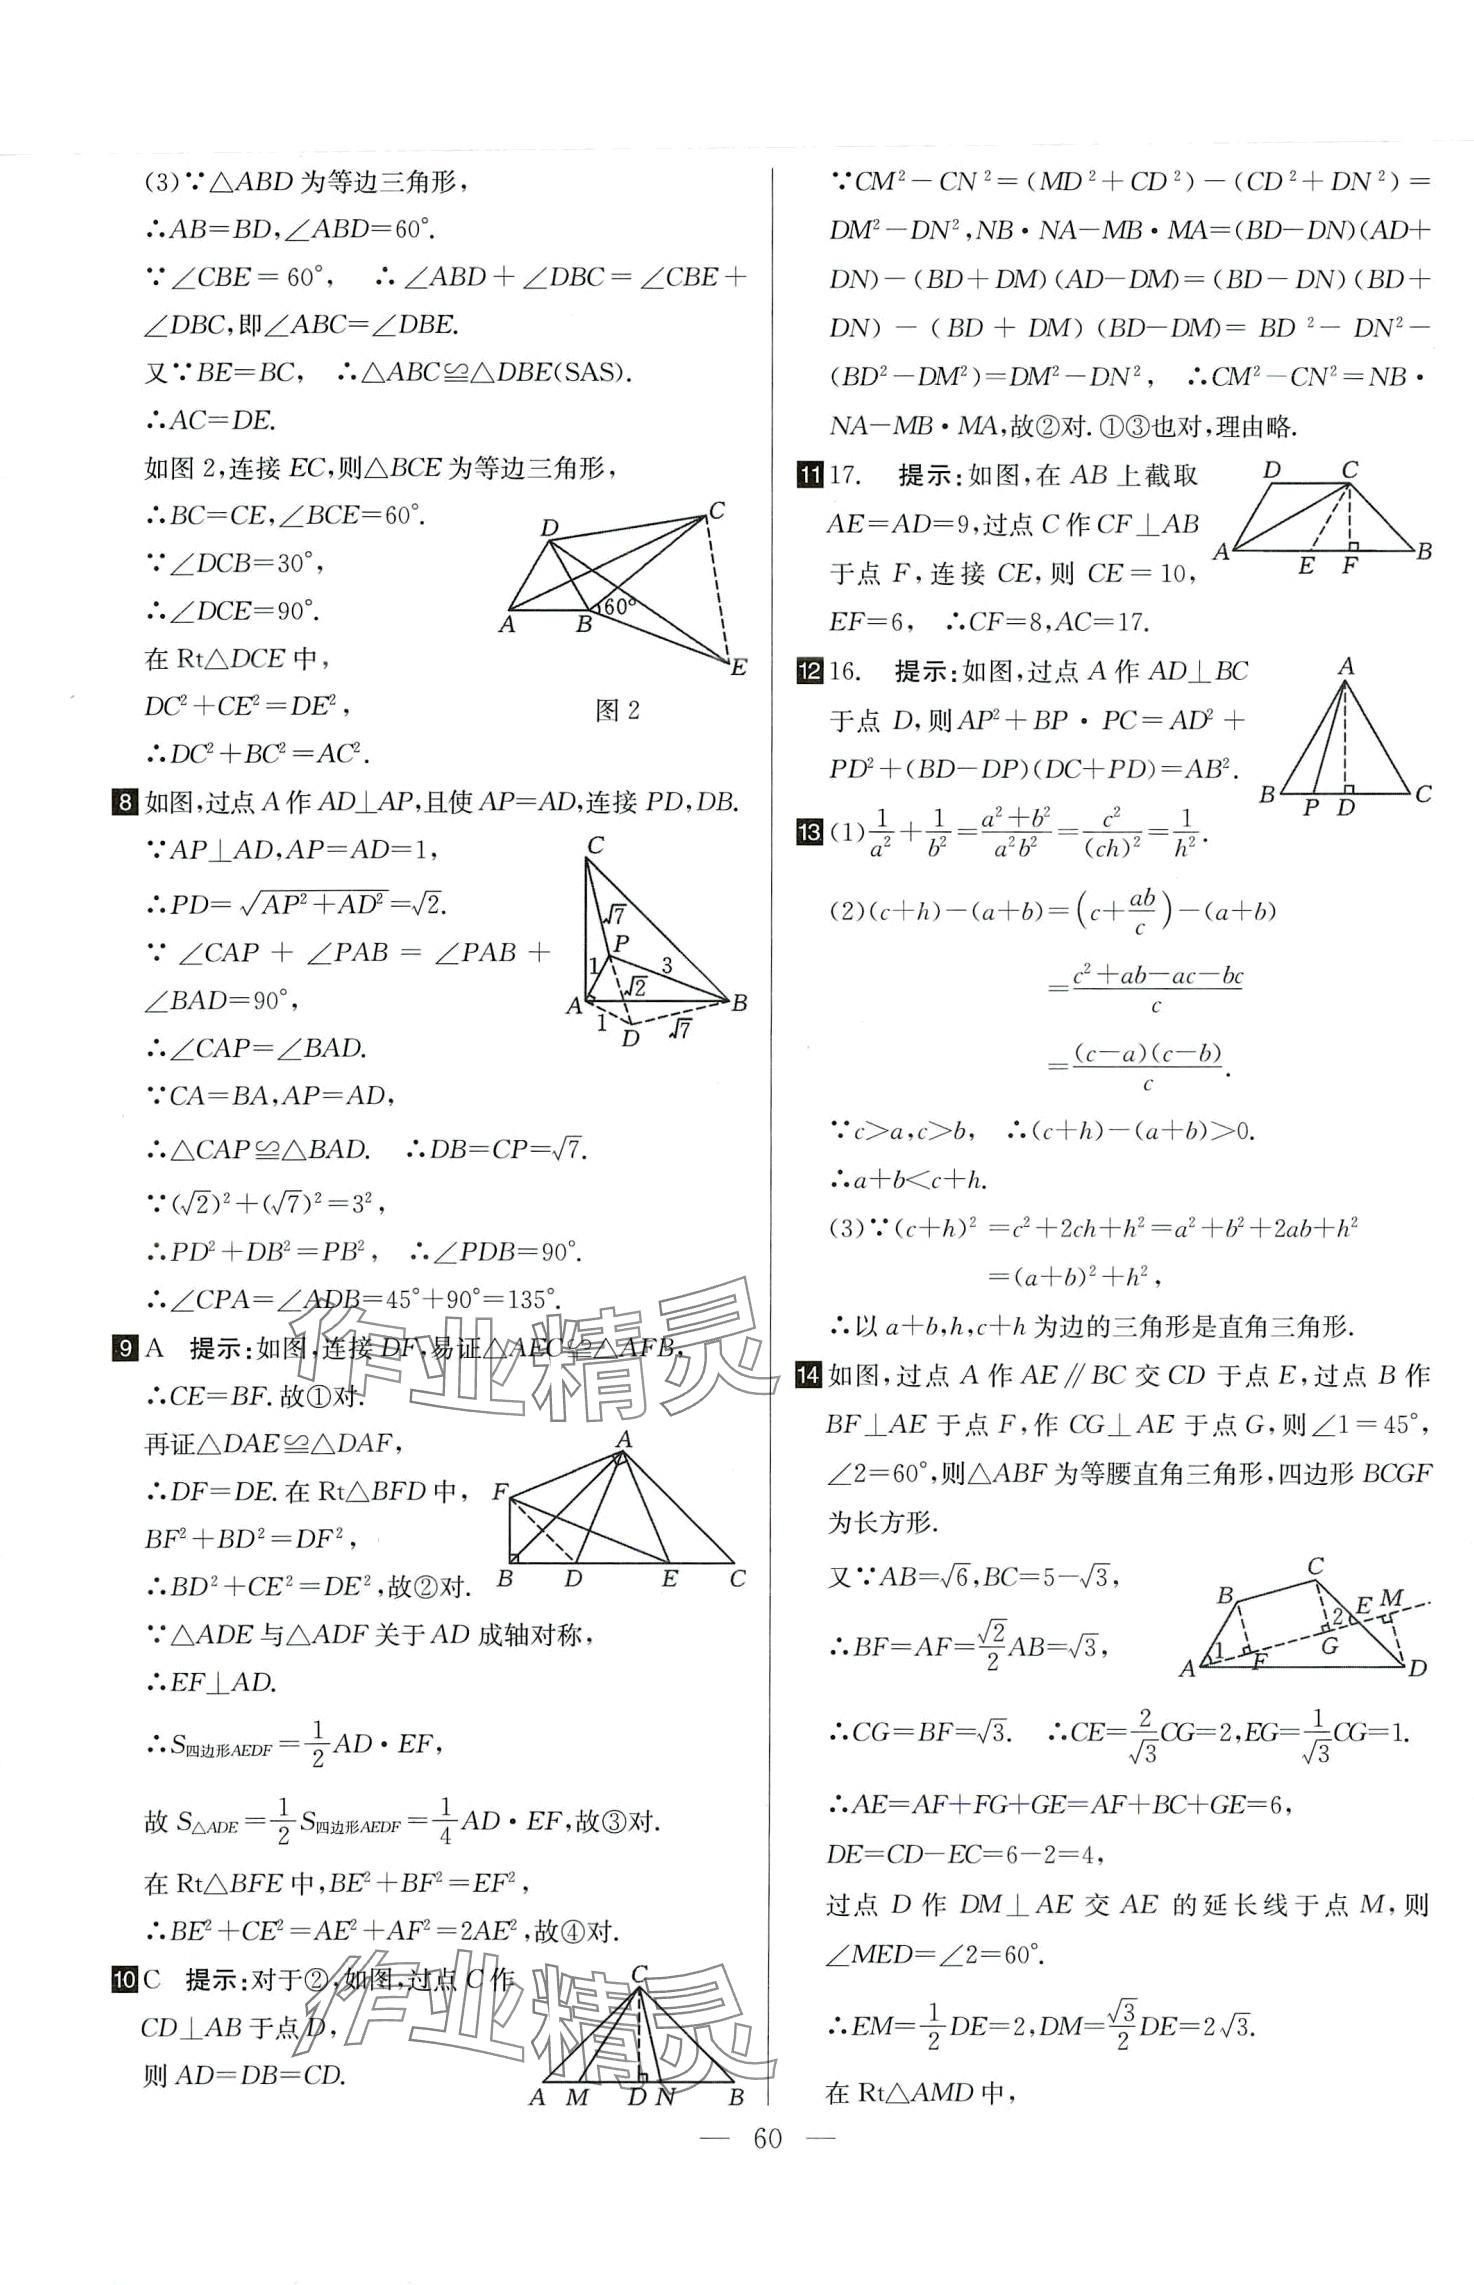 (3)∵△ABD为等边三角形，
∴AB=BD,∠ABD=60°.
∵∠CBE=60°， ∴∠ABD+∠DBC=∠CBE+
∠DBC,即∠ABC=∠DBE.
又∵BE=BC， ∴△ABC≌△DBE(SAS).
∴AC=DE.
如图2,连接EC,则△BCE为等边三角形，
∴BC=CE,∠BCE=60°.
∵∠DCB=30°，
∴∠DCE=90°.
在Rt△DCE中，
DC²+CE²=DE²，
∴DC²+BC²=AC².
D C A B 60° E
图2
8 如图,过点A作AD⊥AP,且使AP=AD,连接PD,DB.
∵AP⊥AD,AP=AD=1，
∴PD=√(AP²+AD²)=√2.
∵∠CAP+∠PAB=∠PAB+
∠BAD=90°，
∴∠CAP=∠BAD.
∵CA=BA,AP=AD，
∴△CAP≌△BAD. ∴DB=CP=√7.
∵(√2)²+(√7)²=3²，
∴PD²+DB²=PB²， ∴∠PDB=90°.
∴∠CPA=∠ADB=45°+90°=135°.
C √7 P 1 3 √2 A B 1 D √7
9 A 提示:如图,连接DF,易证△AEC≌△AFB，
∴CE=BF.故①对.
再证△DAE≌△DAF，
∴DF=DE.在Rt△BFD中，
BF²+BD²=DF²，
∴BD²+CE²=DE²,故②对.
∵△ADE与△ADF关于AD成轴对称，
∴EF⊥AD.
∴S四边形AEDF=1/2AD·EF，
故S△ADE=1/2S四边形AEDF=1/4AD·EF,故③对.
在Rt△BFE中,BE²+BF²=EF²，
∴BE²+CE²=AE²+AF²=2AE²,故④对.
A F B D E C
10 C 提示:对于②,如图,过点C作
CD⊥AB于点D，
则AD=DB=CD.
C A M D N B
∵CM²-CN²=(MD²+CD²)-(CD²+DN²)=
DM²-DN²,NB·NA-MB·MA=(BD-DN)(AD+
DN)-(BD+DM)(AD-DM)=(BD-DN)(BD+
DN)-(BD+DM)(BD-DM)=BD²-DN²-
(BD²-DM²)=DM²-DN²， ∴CM²-CN²=NB·
NA-MB·MA,故②对.①③也对,理由略.
11 17. 提示:如图,在AB上截取
AE=AD=9,过点C作CF⊥AB
于点F,连接CE,则CE=10，
EF=6， ∴CF=8,AC=17.
D C A E F B
12 16. 提示:如图,过点A作AD⊥BC
于点D,则AP²+BP·PC=AD²+
PD²+(BD-DP)(DC+PD)=AB².
A B P D C
13 (1)1/a²+1/b²=(a²+b²)/(a²b²)=c²/(ch)²=1/h².
(2)(c+h)-(a+b)=(c+ab/c)-(a+b)
=(c²+ab-ac-bc)/c
=(c-a)(c-b)/c.
∵c>a,c>b， ∴(c+h)-(a+b)>0.
∴a+b<c+h.
(3)∵(c+h)²=c²+2ch+h²=a²+b²+2ab+h²
=(a+b)²+h²，
∴以a+b,h,c+h为边的三角形是直角三角形.
14 如图,过点A作AE∥BC交CD于点E,过点B作
BF⊥AE于点F,作CG⊥AE于点G,则∠1=45°，
∠2=60°,则△ABF为等腰直角三角形,四边形BCGF
为长方形.
又∵AB=√6,BC=5-√3，
∴BF=AF=√2/2AB=√3，
C B 2 E M A 1 F G D
∴CG=BF=√3. ∴CE=2/√3CG=2,EG=1/√3CG=1.
∴AE=AF+FG+GE=AF+BC+GE=6，
DE=CD-EC=6-2=4，
过点D作DM⊥AE交AE的延长线于点M,则
∠MED=∠2=60°.
∴EM=1/2DE=2,DM=√3/2DE=2√3.
在Rt△AMD中，
— 60 —
作业精灵
作业精灵